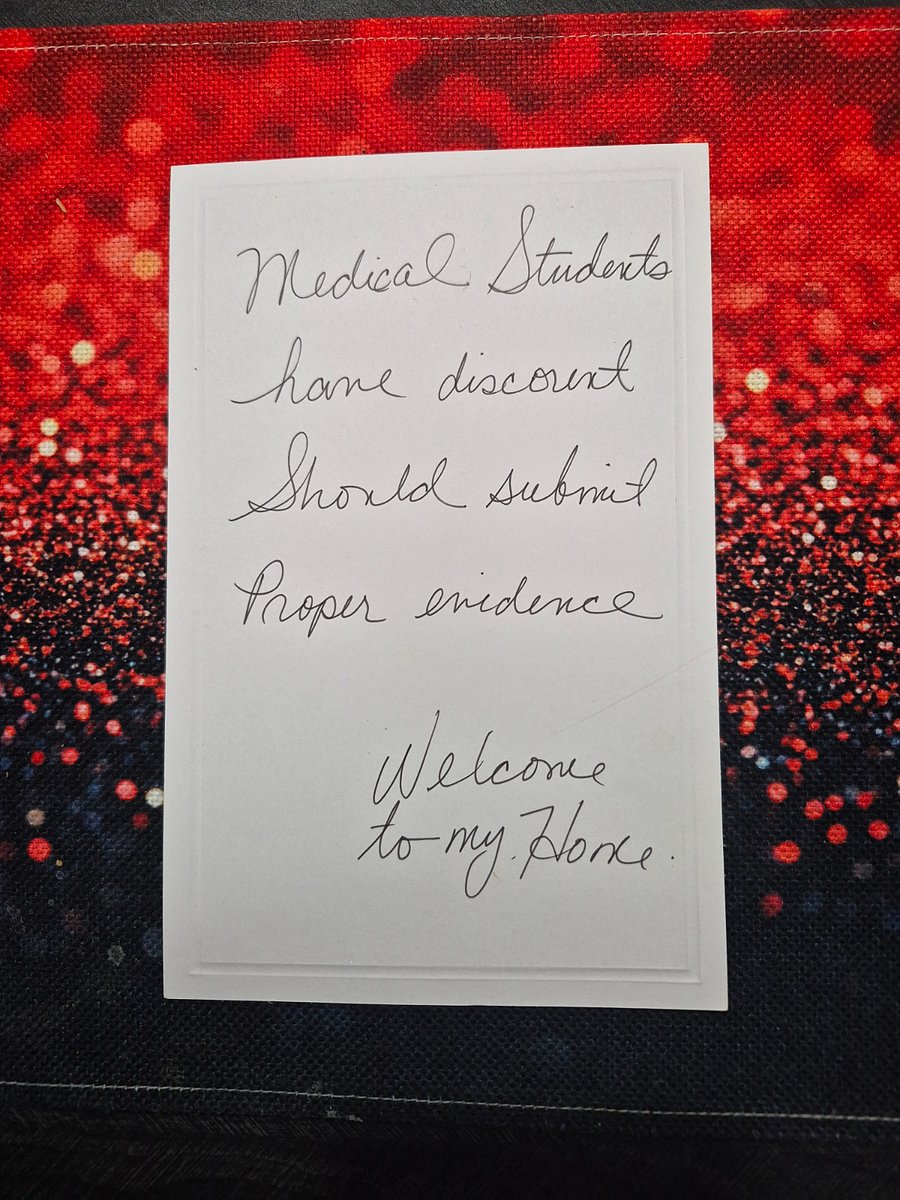 Medical Students
have discount
Should submit
Proper evidence
Welcome
to my Home.